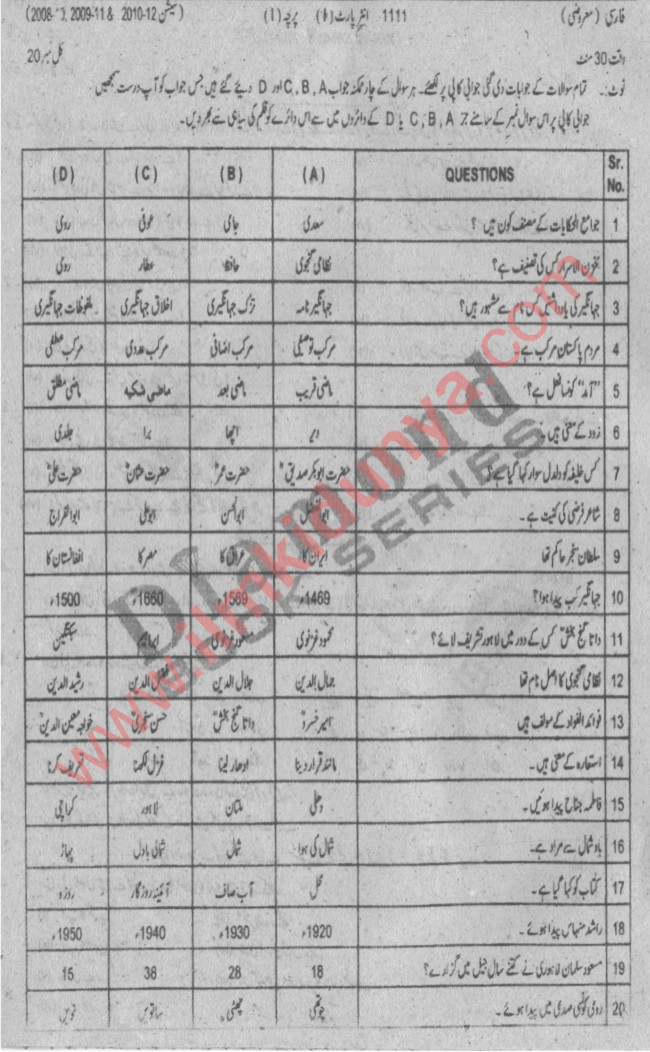 فارسی (معروضی) 1111 انٹر پارٹ (I) پرچہ (I) (سیشن 2010-12 & 2009-11, 2008-)
وقت 30 منٹ کل نمبر 20
نوٹ:۔ تمام سوالات کے جوابات دی گئی جوابی کاپی پر لکھئے۔ ہر سوال کے چار ممکنہ جواب A, B, C اور D دیئے گئے ہیں جس جواب کو آپ درست سمجھیں
جوابی کاپی پر اس سوال نمبر کے سامنے A, B, C یا D کے دائروں میں سے اس دائرے کو قلم کی سیاہی سے بھر دیں۔
Sr. No. QUESTIONS (A) (B) (C) (D)
1 جوامع الحکایات کے مصنف کون ہیں؟ سعدی جامی عوفی رومی
2 مخزن الاسرار کس کی تصنیف ہے؟ نظامی گنجوی حافظ عطار رومی
3 جہانگیر کی یادداشتیں کس نام سے مشہور ہیں؟ جہانگیر نامہ تزک جہانگیری اخلاق جہانگیری ملفوظات جہانگیری
4 مردم پاکستان مرکب ہے۔ مرکب توصیفی مرکب اضافی مرکب عددی مرکب عطفی
5 "آمد" کونسا فعل ہے؟ ماضی قریب ماضی بعید ماضی شکیہ ماضی مطلق
6 زود کے معنی ہیں۔ دیر اچھا برا جلدی
7 کس خلیفہ کو دلدل سوار کہا گیا ہے؟ حضرت ابوبکر صدیقؓ حضرت عمرؓ حضرت عثمانؓ حضرت علیؓ
8 شاعر فرخی کی کنیت ہے۔ ابوالفضل ابوالحسن ابوعلی ابوالفراج
9 سلطان سنجر حاکم تھا ایران کا عراق کا مصر کا افغانستان کا
10 جہانگیر کب پیدا ہوا؟ 1469ء 1569ء 1660ء 1500ء
11 داتا گنج بخشؒ کس کے دور میں لاہور تشریف لائے؟ محمود غزنوی مسعود غزنوی ابراہیم سبکتگین
12 نظامی گنجوی کا اصل نام تھا جمال الدین جلال الدین الدین رشید الدین
13 فوائد الفواد کے مولف ہیں امیر خسروؒ داتا گنج بخشؒ حسن سجزی خواجہ معین الدینؒ
14 استعارہ کے معنی ہیں۔ مانند قرار دینا ادھار لینا غزل لکھنا تعریف کرنا
15 فاطمہ جناح پیدا ہوئیں۔ دہلی ملتان لاہور کراچی
16 باد شمال سے مراد ہے۔ شمال کی ہوا شمال شمالی بادل پہاڑ
17 کتاب کو کہا گیا ہے۔ گل آب صاف آئینہ روزگار روزہ
18 راشد منہاس پیدا ہوئے۔ 1920ء 1930ء 1940ء 1950ء
19 مسعود سلمان لاہوری نے کتنے سال جیل میں گزارے؟ 18 28 38 15
20 رومی کونسی صدی میں پیدا ہوئے۔ چوتھی چھٹی ساتویں نویں
www.ilmkidunya.com
Diamond
SERIES